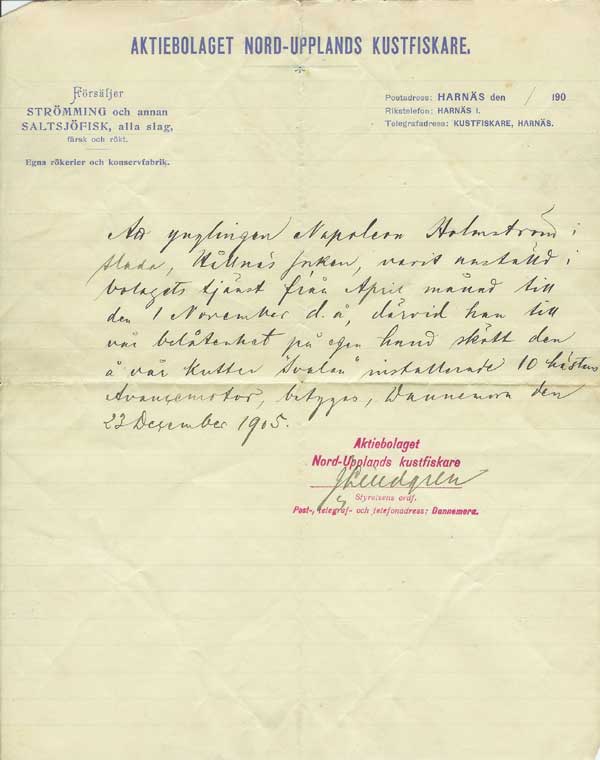 AKTIEBOLAGET NORD-UPPLANDS KUSTFISKARE.
Försäljer
STRÖMMING och annan
SALTSJÖFISK, alla slag,
färsk och rökt.
Egna rökerier och konservfabrik.
Postadress: HARNÄS den / 190
Rikstelefon: HARNÄS 1.
Telegrafadress: KUSTFISKARE, HARNÄS.
Att ynglingen Napoleon Holmström i
Slada, Hållnäs socken, varit anställd i
bolagets tjänst från April månad till
den 1 November d. å, därvid han till
vår belåtenhet på egen hand skött den
å vår kutter "Svalan" installerade 10 hästars
Avancemotor, betygas, Dannemora den
23 December 1905.
Aktiebolaget
Nord-Upplands kustfiskare
J Lindgren
Styrelsens ordf.
Post-, telegraf- och telefonadress: Dannemora.